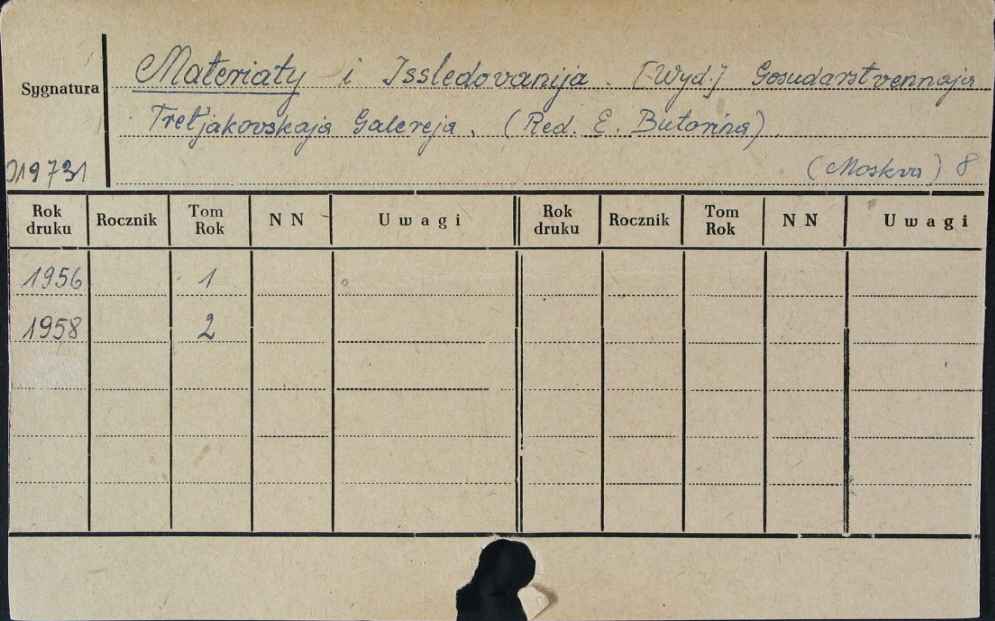 Sygnatura
Materiały i Issledovanija. [Wyd.] Gosudarstvennaja
Tret'jakovskaja Galereja. (Red. E. Butorina)
019731
(Moskva) 8
Rok druku Rocznik Tom Rok N N Uwagi Rok druku Rocznik Tom Rok N N Uwagi
1956 1
1958 2